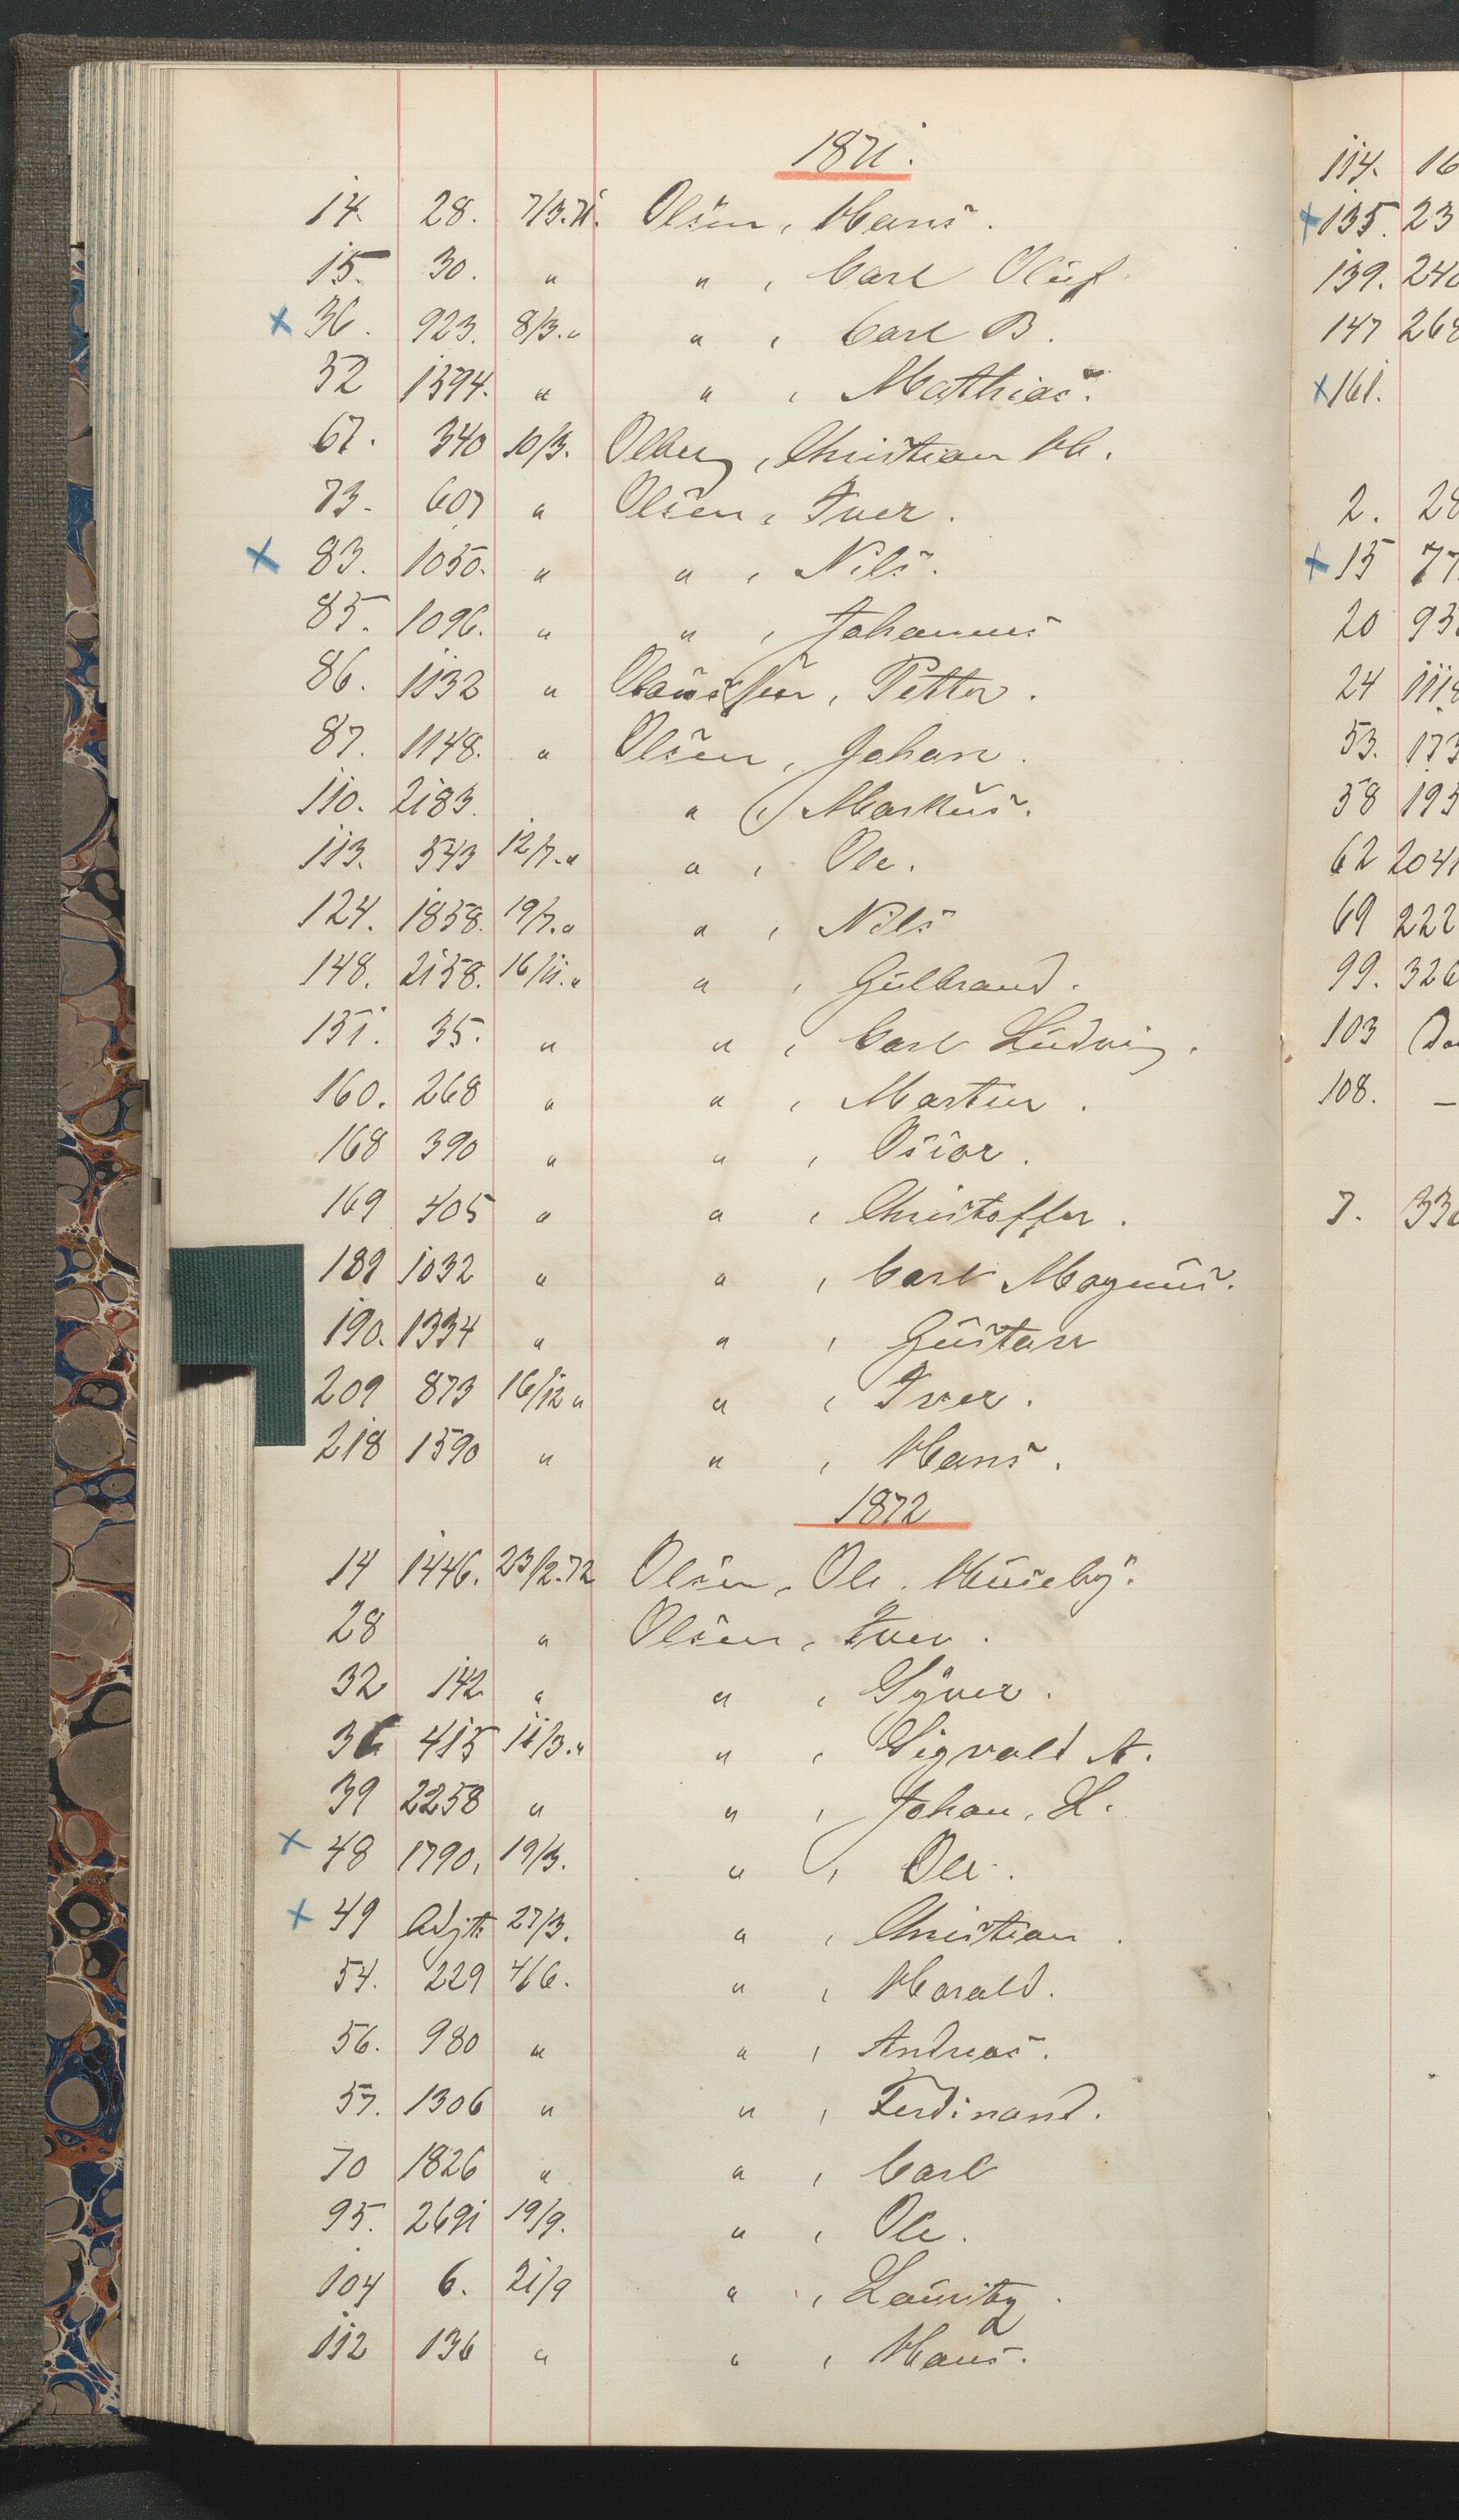 1871.
14. 28. 7/3.71. Olsen, Hans.
15. 30. " " , Carl Oluf
x 36. 923. 8/3. " " , Carl B.
32 1394. " " , Mathias.
67. 340 10/3. Olberg, Christian H.
73. 607 " Olsen, Iver.
x 83. 1050. " " , Nils.
85. 1096. " " , Johannes
86. 1132 " Olaussen, Petter.
87. 1148. " Olsen, Johan.
110. 2183. " , Markus.
113. 543 12/7. " " , Ole.
124. 1858. 19/7. " " , Nils
148. 2158. 16/11. " " , Gulbrand.
151. 35. " " , Carl Ludvig.
160. 268 " " , Martin.
168 390 " " , Oscar.
169 405 " " , Christoffer.
189 1032 " " , Carl Magnus.
190. 1334 " " , Gustav
209 873 16/12 " " , Iver.
218 1590 " " , Hans.
1872
14 1446. 23/2.72 Olsen, Ole. Huseby.
28 " Olsen, Iver.
32 142 " " , Syver.
36 415 11/3. " " , Sigvald A.
39 2258 " " , Johan. L.
x 48 1790. 19/3. " , Ole.
x 49 Adjt. 27/3. " , Christian.
54. 229 4/6. " , Harald.
56. 980 " " , Andreas.
57. 1306 " " , Ferdinand.
70 1826 " " , Carl
95. 2691 19/9. " , Ole.
104 6. 21/9 " , Lauritz.
112 136 " " , Hans.
114. 16
x 135. 23
139. 240
147 268
x 161.
2. 28
x 15 77
20 93
24 111
53. 173
58 195
62 2041
69 222
99. 326
103
108. –
7. 330